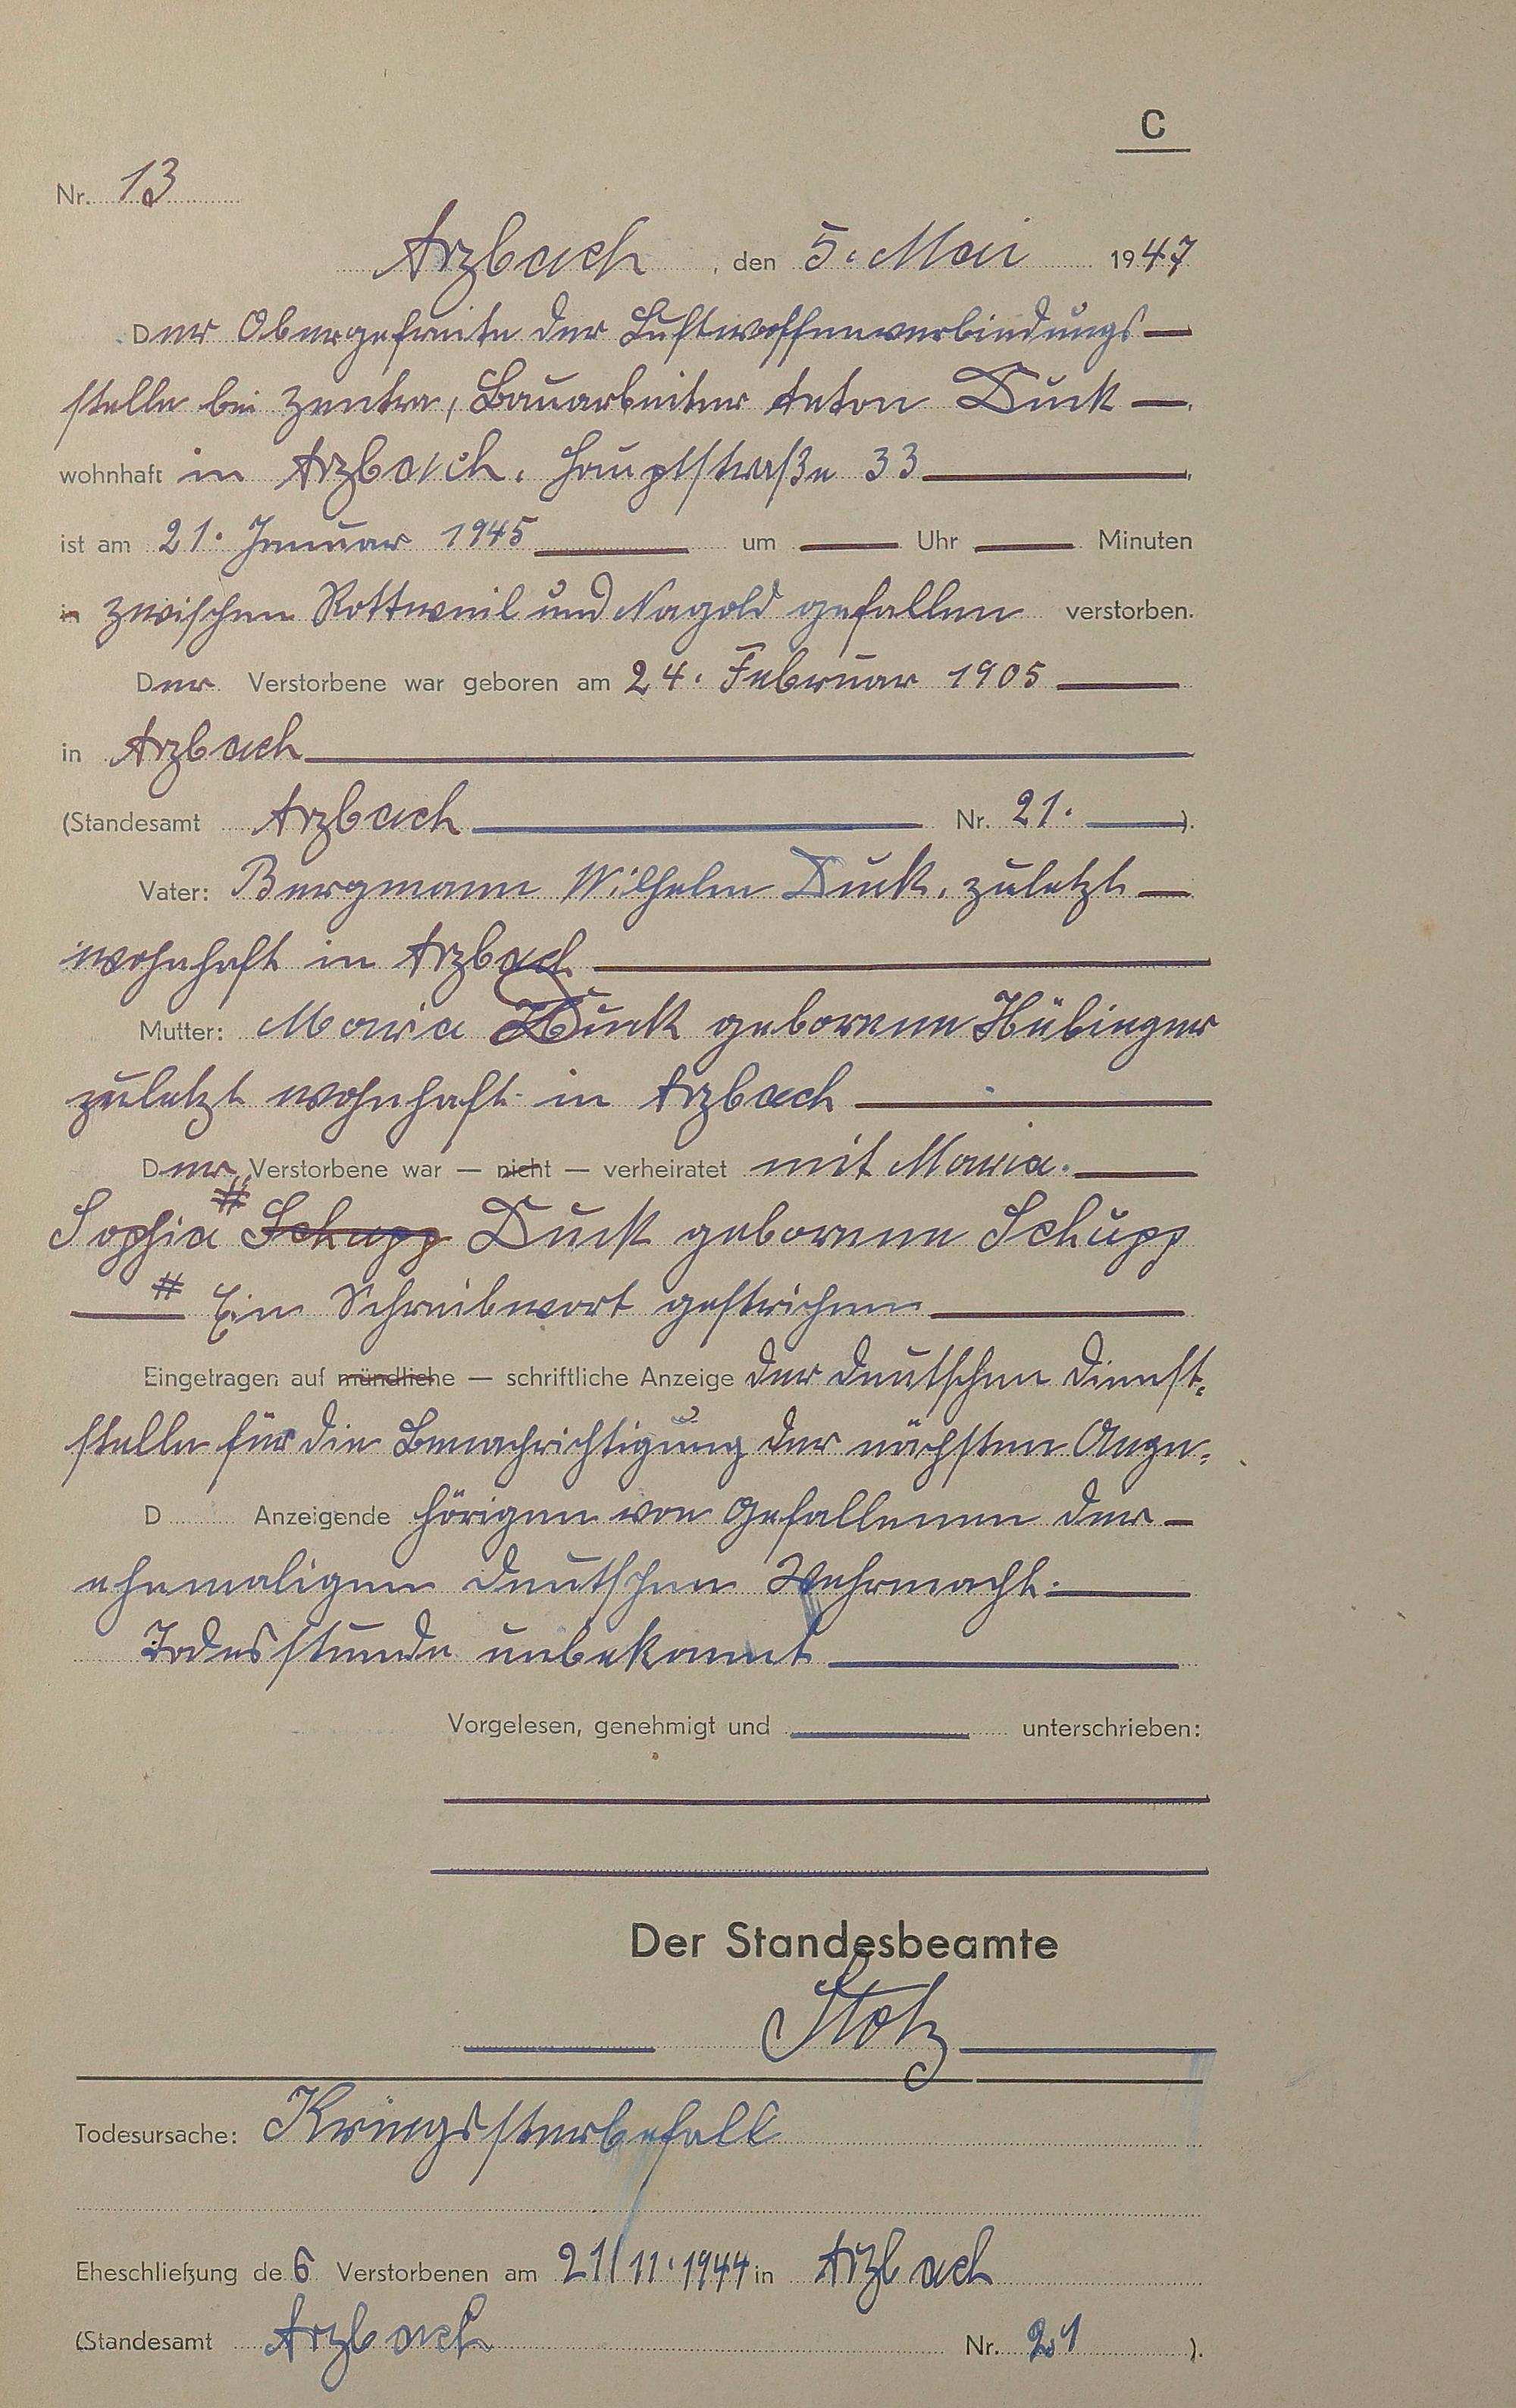 C
Nr. 13
Arzbach, den 5. Mai 1947
Der Obergefreite der Luftwaffenverbindungs-
stelle bei Zentra, Bauarbeiter Anton Duck
wohnhaft in Arzbach. Hauptstraße 33
ist am 21. Januar 1945 um Uhr Minuten
in zwischen Rottweil und Nagold gefallen verstorben.
Der Verstorbene war geboren am 24. Februar 1905
in Arzbach
(Standesamt Arzbach Nr. 21.)
Vater: Bergmann Wilhelm Duck, zuletzt
wohnhaft in Arzbach
Mutter: Maria Duck geborene Hübinger
zuletzt wohnhaft in Arzbach
Der Verstorbene war — nicht — verheiratet mit Maria.
Sophia # Schupp Duck geborene Schupp
# Ein Schreibwort gestrichen
Eingetragen auf mündliche — schriftliche Anzeige der deutschen Dienst-
stelle für die Benachrichtigung der nächsten Ange-
D Anzeigende hörigen von Gefallenen der
ehemaligen deutschen Wehrmacht.
Todesstunde unbekannt
Vorgelesen, genehmigt und unterschrieben:
Der Standesbeamte
Stotz
Todesursache: Kriegssterbefall
Eheschließung des Verstorbenen am 21/11.1944 in Arzbach
(Standesamt Arzbach Nr. 21).